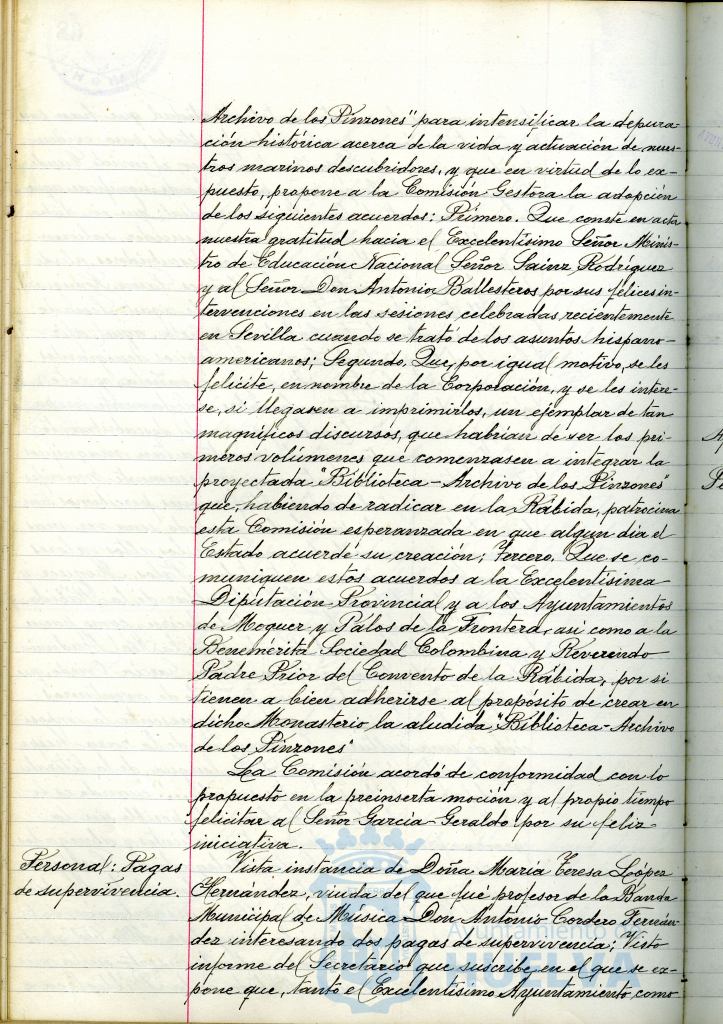 Archivo de los Pinzones" para intensificar la depura-
ción histórica acerca de la vida y actuación de nues-
tros marinos descubridores, y que en virtud de lo ex-
puesto, propone a la Comisión Gestora la adopción
de los siguientes acuerdos: Primero. Que conste en acta
nuestra gratitud hacia el Excelentísimo Señor Minis-
tro de Educación Nacional Señor Sainz Rodríguez
y al Señor Don Antonio Ballesteros por sus felices in-
tervenciones en las sesiones celebradas recientemente
en Sevilla cuando se trató de los asuntos hispano-
americanos; Segundo. Que, por igual motivo, se les
felicite, en nombre de la Corporación, y se les intere-
se, si llegasen a imprimirlos, un ejemplar de tan
magníficos discursos, que habrían de ser los pri-
meros volúmenes que comenzasen a integrar la
proyectada "Biblioteca-Archivo de los Pinzones"
que, habiendo de radicar en la Rábida, patrocina
esta Comisión esperanzada en que algun día el
Estado acuerde su creación; Tercero. Que se co-
muniquen estos acuerdos a la Excelentísima
Diputación Provincial y a los Ayuntamientos
de Moguer y Palos de la Frontera, asi como a la
Benemérita Sociedad Colombina y Reverendo
Padre Prior del Convento de la Rábida, por si
tienen a bien adherirse al propósito de crear en
dicho Monasterio la aludida "Biblioteca-Archivo
de los Pinzones"
La Comisión acordó de conformidad con lo
propuesto en la preinserta moción y al propio tiempo
felicitar al Señor García-Geraldo por su feliz
iniciativa.
Personal: Pagas
de supervivencia.
Vista instancia de Doña María Teresa López
Hernández, viuda del que fué profesor de la Banda
Municipal de Música Don Antonio Cordero Fernán-
dez interesando dos pagas de supervivencia; Visto
informe del Secretario que suscribe, en el que se ex-
pone que, tanto el Excelentísimo Ayuntamiento, como
Ayuntamiento de
HUELVA